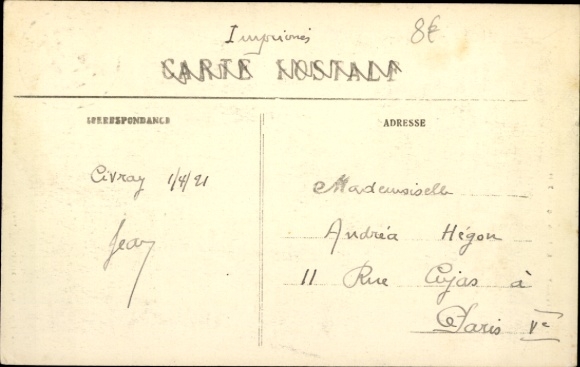 Imprimés
8€
CARTE POSTALE
CORRESPONDANCE
ADRESSE
Civray 1/4/21
Jean
Mademoiselle
Andréa Hégon
11 Rue Cujas à
Paris Ve